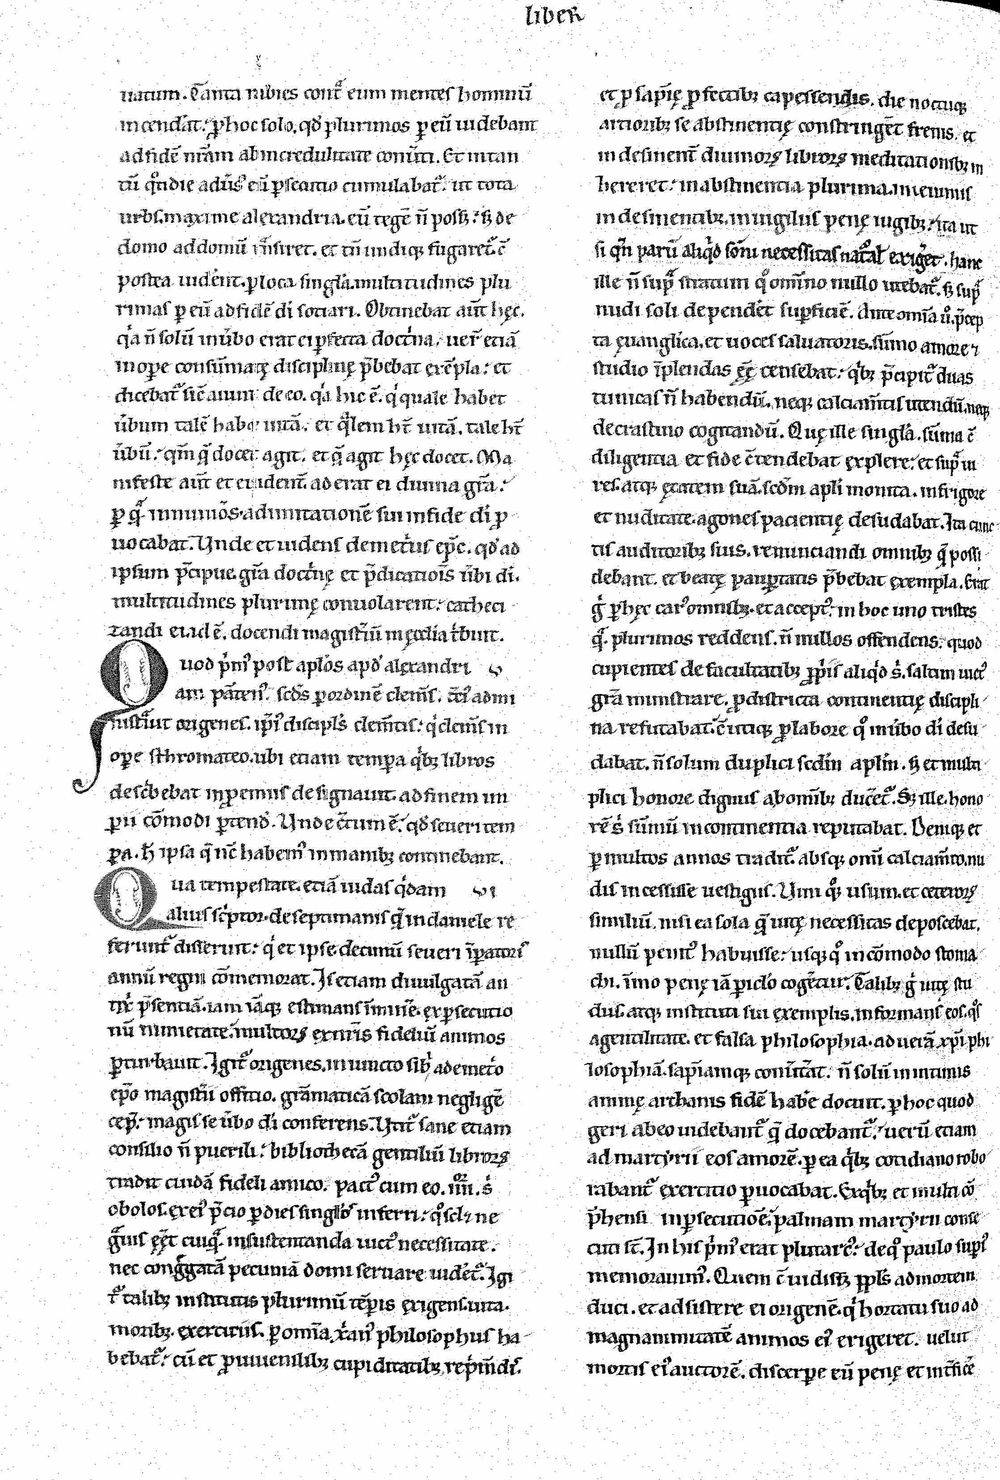 liber
uatum. Tanta rabies contͣ eum mentes hominū
incendit. ꝑ hoc solo. qđ plurimos ꝑ eū uidebant
ad fidē nr̄am ab incredulitate con̄uti. Et in tan
tū cͦtidie adūs eū ꝑsecutio cumulabat᷑. ut tota
urbs. maxime alexandria. eū tegē n̄ poss&. sꝫ de
domo ad domū tͣnsiret. et tn̄ undiqꝫ fugaret᷑. ē
postea uidēnt. ꝑ loca singl̄a. multitudines plu
rimas ꝑ eū ad fidē di sotiari. Obtinebat aūt hęc.
qͥa n̄ solū in ūbo erat ei ꝑfecta doctͥna. uerͧ etiā
in opere consūmatę disciplinę p̄bebat exēpla. et
dicebat᷑ sic̄ aiunt de eo. qͥa hic ē. qͥ quale habet
ūbum talē habet uitā. et qͣlem ht̄ uitā. tale ht̄
ūbū. qm̄ qͣ docet agit. et qͣ agit hęc docet. Ma
nifeste aūt et euidenter aderat ei diuina gr̄a.
ꝑ qͣ innumōs. ad imitationē sui in fide di ꝓ
uocabat. Unde et uidens demetrius ep̄c. qđ ad
ipsum p̄cipue. gr̄a doctͥnę et p̄dicatiois̄ ūbi di.
multitudines plurimę conuolarent. catheci
zandi ei. id ē. docendi magist̄iū in ęcclia tͥbuit.
Quod pͥmꝰ post apl̄os apđ alexandri v
am pantenꝰ. scđs ꝑ ordinē clem̄s. t̄ciꝰ admi
nistͣuit origenes. ip̄iꝰ discipl̄s clem̄tis. qͥ clem̄s in
opere sthromateo. ubi etiam tempora qͥbꝫ libros
describebat in ꝓemiis designauit. ad finem im
ꝑii cōmodi ꝑtendit. Unde c̄tum ē. qđ seueri tem
ꝑa. h̄ ipsa q̄ nc̄ habemꝰ in manibꝫ continebant.
Qua tempestate. etiā iudas qͥdam vi
alius scͥptor. de septimanis q̄ in daniele re
ferunt᷑ disseruit. qͥ et ipse decimū seueri īperatoris
annū regni cōmemorat. Is etiam diuulgatā an
tix̄ p̄sentiā. iam iāqꝫ estimans īminē. ex ꝑsecutio
nū nimietate. multoꝝ extͥnis fideliū animos
ꝑturbauit. Igit᷑ origenes. iniuncto sibi a demetͥo
ep̄o magist̄ii offitio. grāmaticā scolam neglig̅e
cepit. magis se ūbo di conferens. Utit᷑ sane etiam
consilio n̄ puerili. bibliothecā gentiliū libroꝝ
tradit cuidā fideli amico. pactꝰ cum eo. iiiior. s̄
obolos. ex eiꝰ p̄cio ꝑ dies singlos inferri. qͦ scilicet ne
gͣuis eēt cuiqͣ in sustentanda uictꝰ necessitate.
nec congͣgatā pecuniā domi seruare uidēt᷑. Igi
t᷑ talibꝫ institutis plurimū tēpis exigens. uita.
moribꝫ. exercitiis. ꝑ omīa. x̄ianꝰ philosophus ha
bebat᷑. cū et ꝑ iuuenilibꝫ cupiditatibꝫ rep̄mdis.
et ꝓ sapīę ꝓfectibꝫ capessendis. die noctuqꝫ
artioribꝫ se abstinentię constringēt frenis. et
in desinent᷑ diuinoꝝ libroꝝ meditationibꝫ in
hereret. in abstinentia plurima. in ieiuniis
indesinentibꝫ. in uigiliis penę iugibꝫ. ita ut
si qn̄ parū aliqͥd son̄i necessitas natͣal exiget. hanc
ille n̄ supͣ stratum qͦ omīno nullo utebat᷑. sꝫ supͣ
nudi soli dependēt suꝑficiē. Ante omīa u᷑. p̄cep
ta euangelica. et uoces saluatoris. sūmo amore et
studio īplendas eē censebat. qͥbꝫ p̄cipit᷑ duas
tunicas n̄ habendū. neqꝫ calciam̄tis utendū. neqꝫ
de crastino cogitandū. Quę ille singl̄a. sūma cū
diligentia et fide c̄tendebat explere. et supͣ ui
res. atqꝫ ętatem suā. scđm apl̄i monita. in frigore
et nuditate. agones pacientię desudabat. Ita cunc
tis auditoribꝫ suis. renunciandi omnibꝫ q̄ possi
debant. et beatę pauꝑtatis p̄bebat exempla. Erat
gͦ ꝑ hęc carꝰ omnibꝫ. et acceptꝰ. in hoc uno tristes
qͣ. plurimos reddens. n̄ nullos offendens. quod
cupientes de facultatibꝫ ꝓpͥis aliqͥd s̄. saltim uictꝰ
gr̄a ministrare. ꝑ districta continentię discipli
na refutabat. c̄ utiqꝫ ꝓ labore qͦ in ūbo di desu
dabat. n̄ solum duplici scđm apl̄m. sꝫ et multi
plici honore dignus ab omībꝫ ducēt᷑. Sꝫ ille hono
rē s̄ sūmū in continentia reputabat. Deniqꝫ et
ꝑ multos annos tradit᷑. absqꝫ omī calciam̄to. nu
dis incessisse uestigiis. Uini qͦqꝫ usum. et ceteroꝝ
similiū. nisi ea sola q̄ uitę necessitas deposcebat.
nullū penitꝰ habuisse. usqꝫ qͦ incōmodo stoma
chi. īmo penę iā ꝑiclo cogēt᷑. Talibꝫ gͦ uitę stu
diis. atqꝫ instituti sui exemplis. informans eos. qͦs
a gentilitate. et falsa philosophia. ad uerā xp̄i phi
losophiā. sapiamqꝫ con̄utat. n̄ solū in intimis
animę archanis fidē habē docuit. ꝑ hoc quod
geri ab eo uidebant᷑ q̄ docebant᷑. uerū etiam
ad martyrii eos amorē. ꝑ ea qͥbꝫ cotidiano robo
rabant᷑ exercitio ꝓuocabat. Ex qͥbꝫ et multi cō
p̄hensi in ꝑsecutiōe. palmam martyrii conse
cuti st̄. In his pͥmꝰ erat plutarcꝰ. de qͦ paulo supͥꝰ
memorauimꝰ. Quem c̄ uidiss& ppl̄s ad mortem
duci. et adsistere ei origenē. qͥ hortatu suo ad
magnanimitatē animos eiꝰ erigeret. uelut
mortis eiꝰ auctorē. discerꝑe eū penę et int̄fice